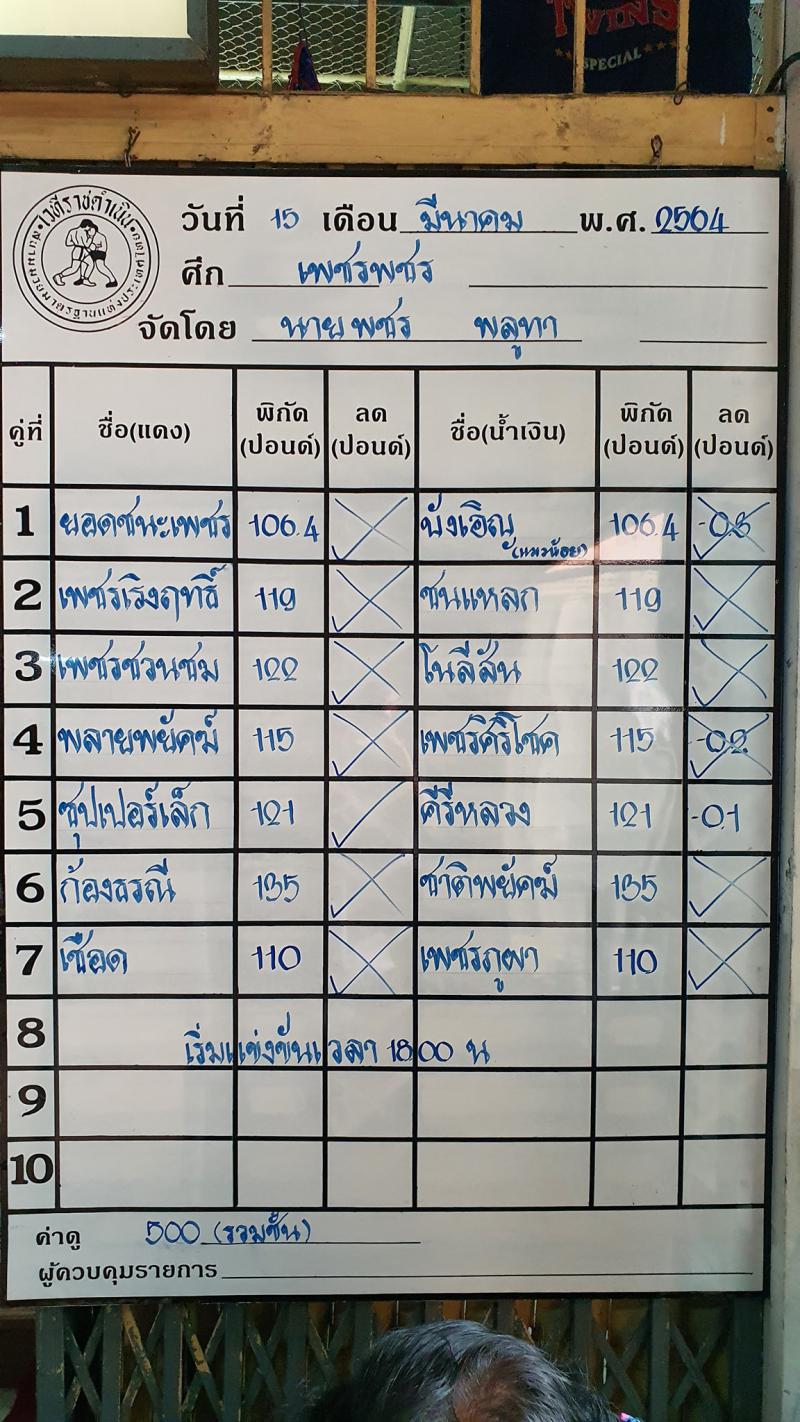 TWINS
SPECIAL
เวทีราชดำเนิน
สนามมวยมาตรฐานแห่งประเทศไทย
วันที่ 15 เดือน มีนาคม พ.ศ. 2564
ศึก เพชรพชร
จัดโดย นายพชร พลูทา
คู่ที่ ชื่อ(แดง) พิกัด (ปอนด์) ลด (ปอนด์) ชื่อ(น้ำเงิน) พิกัด (ปอนด์) ลด (ปอนด์)
1 ยอดชนะเพชร 106.4 บังเอิญ (แมวน้อย) 106.4 -0.5
2 เพชรเริงฤทธิ์ 119 ชนแหลก 119
3 เพชรชวนชม 122 โนลีสัน 122
4 พลายพยัคฆ์ 115 เพชรศิริโชค 115 -0.2
5 ซุปเปอร์เล็ก 121 คีรีหลวง 121 -0.1
6 ก้องธรณี 135 ชาติพยัคฆ์ 135
7 เชือด 110 เพชรภูผา 110
8 เริ่มแข่งขันเวลา 18.00 น
9
10
ค่าดู 500 (รวมชั้น)
ผู้ควบคุมรายการ